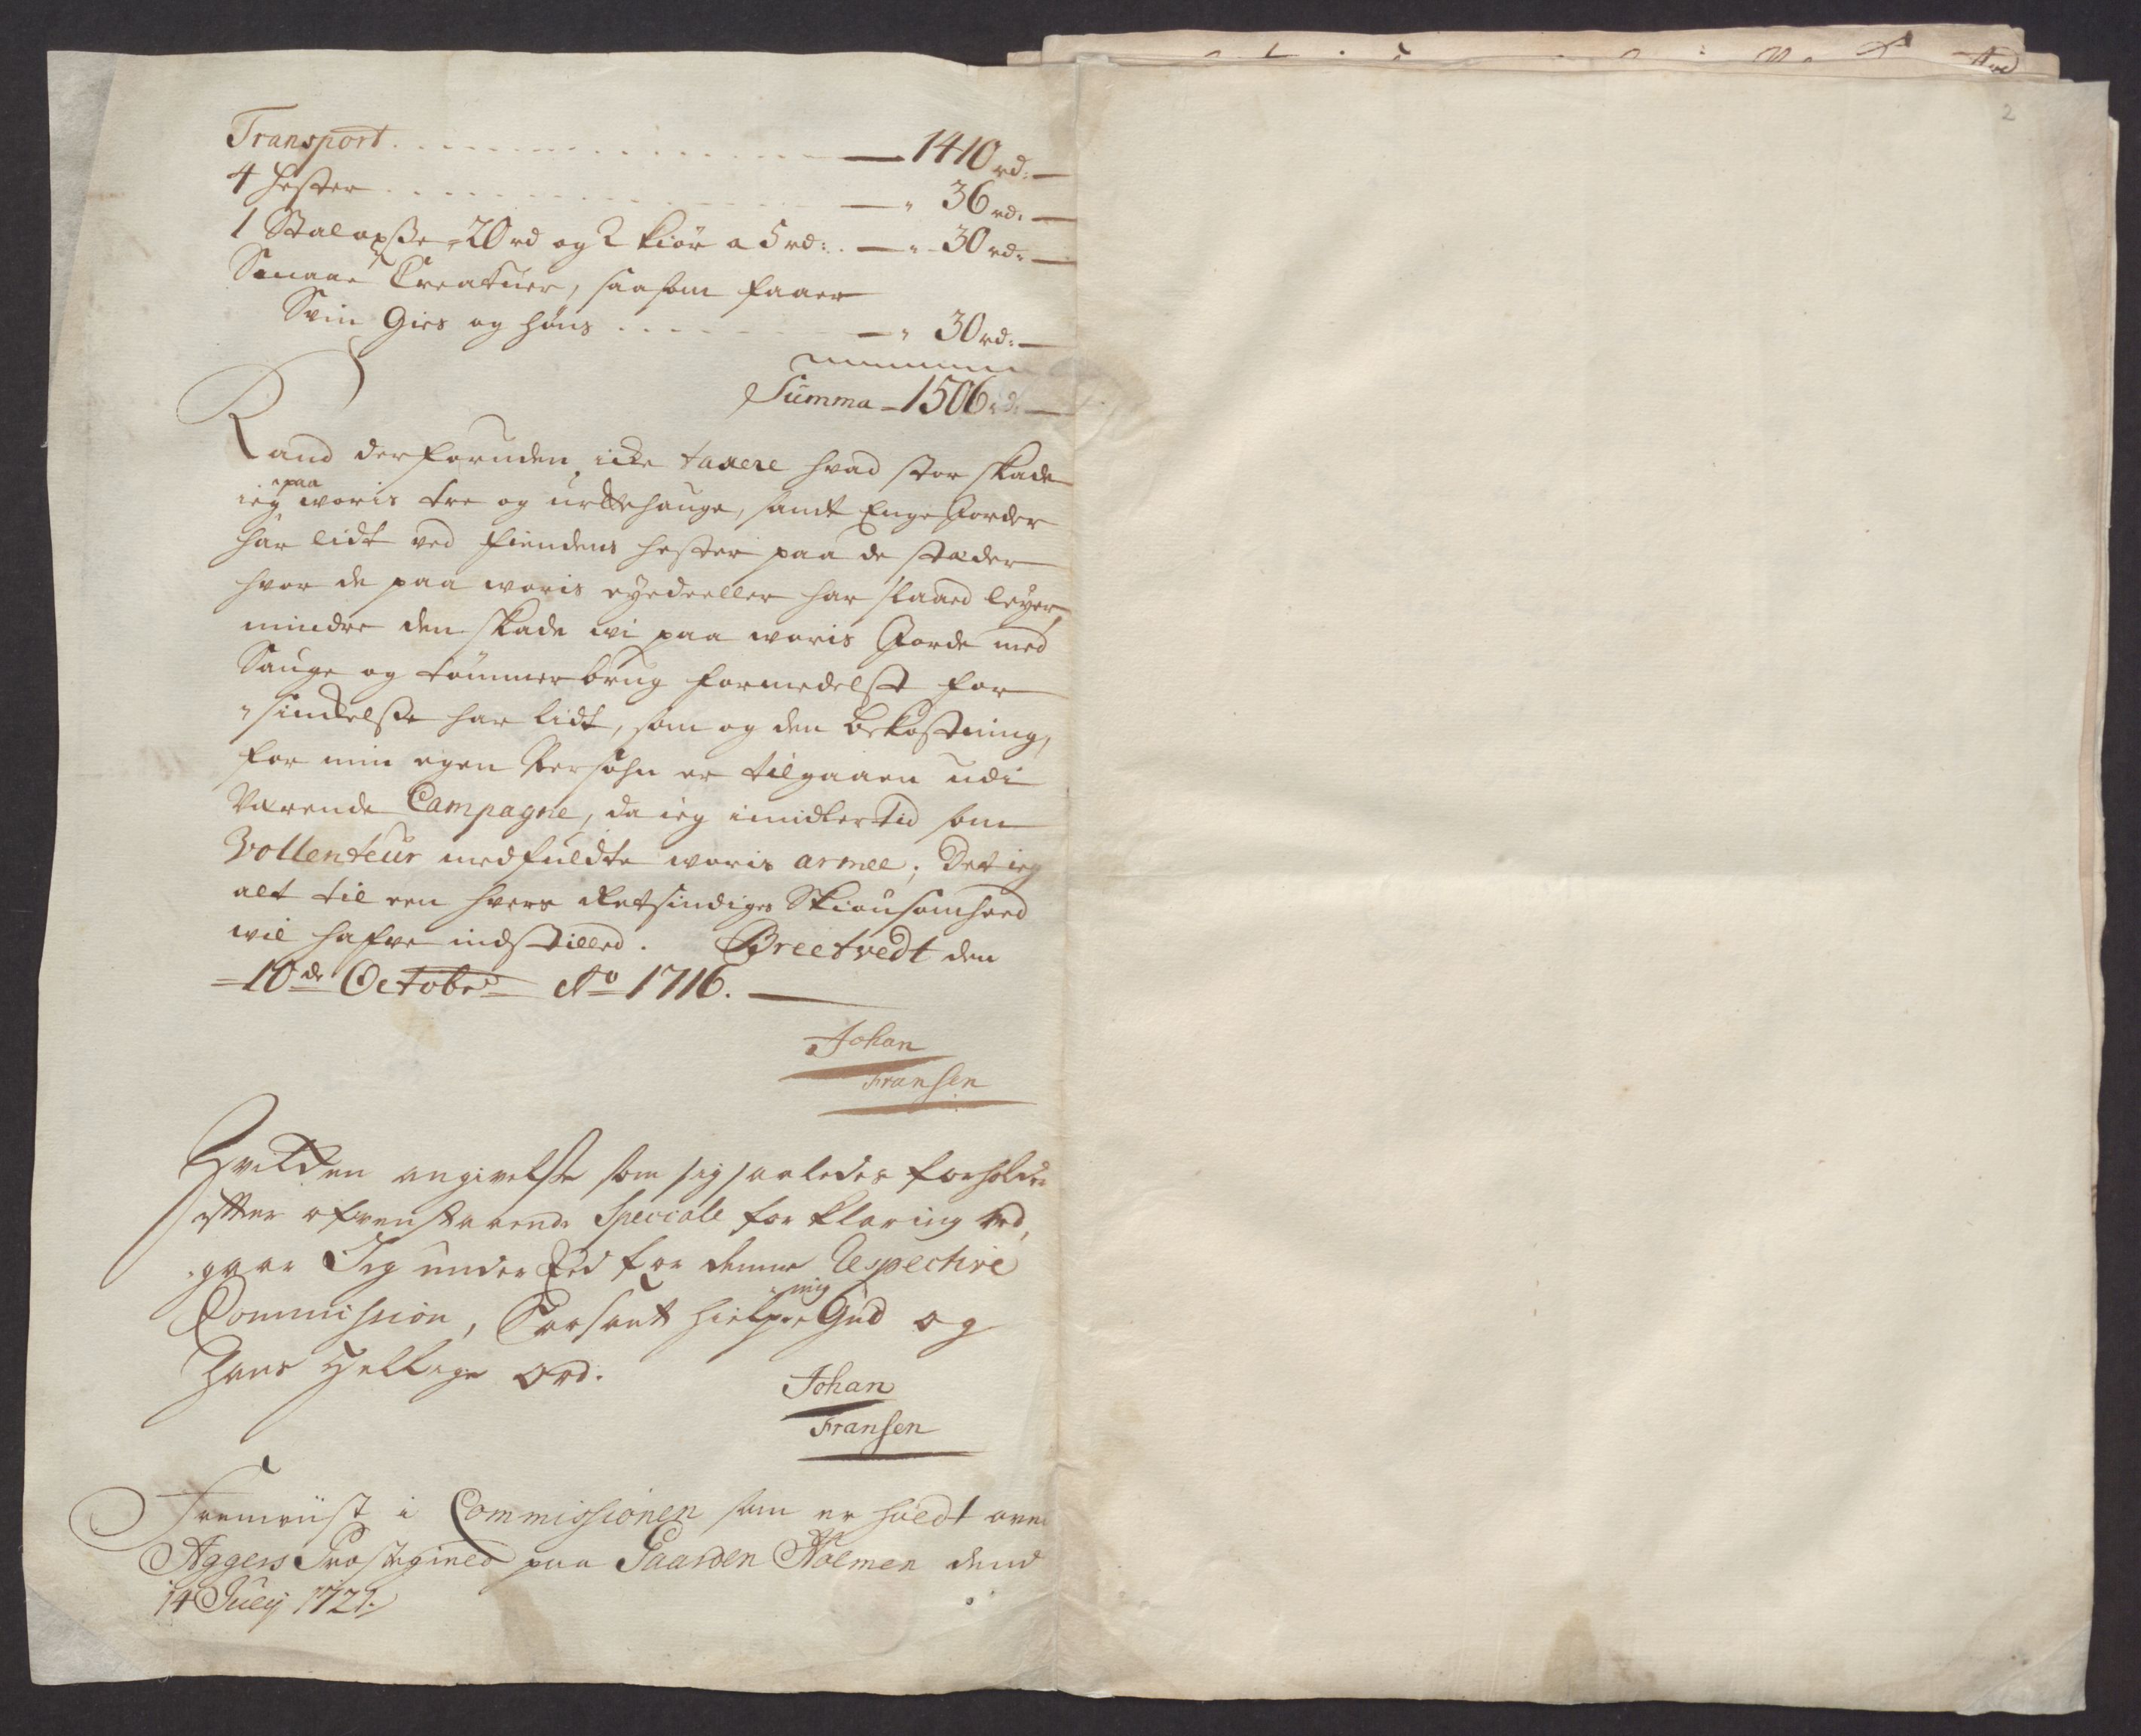 2
Transport . . . . . . . . . . . . — 1410 rd: —
4 Hester . . . . . . . . . . . . — " 36 rd: —
1 Staloxsse - 20 rd og 2 kiör a 5 rd: . — " 30 rd: —
Smaae Creatuer, saasom faaer
Svin Gies og höns . . . . . — " 30 rd: —
Summa - 1506 rd: —
Kand derforuden icke taxere hvad stor skade
ieg paa woris tre og urtehauge, samt Enge Jorder
har lidt ved fiendens hester paa de stæder
hvor de paa woris eyedeeller har slaaed leyer,
mindre den skade wi paa woris Jorde med
Sauge og tömmerbrug formedelst for
"sinckelsse har lidt, som og den bekostning,
for min egen Persohn er tilgaaen udi
Værende Campagne, da ieg imidlertid som
Vollenteur medfuldte woris armee; Det ieg
alt til een hvers Retsindiges Skiönsomheed
wil hafve indstilled. Breetvedt den
- 10de October Ao 1716. —
Johan
Fransen
Hvilcken angivelsse som sig saaledes forholder
efter ofvenstaaende Speciale forklaring ved,
"gaar Jeg under Eed for denne Respective
Commission, Saasant hielpe mig Gud og
Hans Hellige Ord.
Johan
Fransen
Fremviist i Commissionen som er holdt over
Aggers Præstegield paa Gaarden Holmen dend
14 Julij 1721.